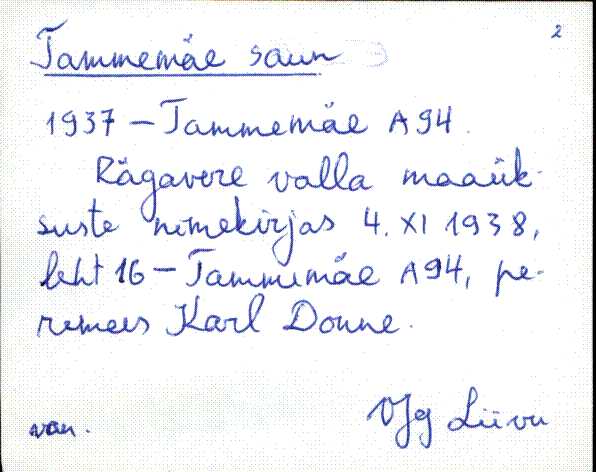 2
Tammemäe saun
1937 – Tammemäe A94.
Rägavere valla maaük-
suste nimekirjas 4. XI 1938,
leht 16 – Tammemäe A94, pe-
remees Karl Donne.
VJg Liivu